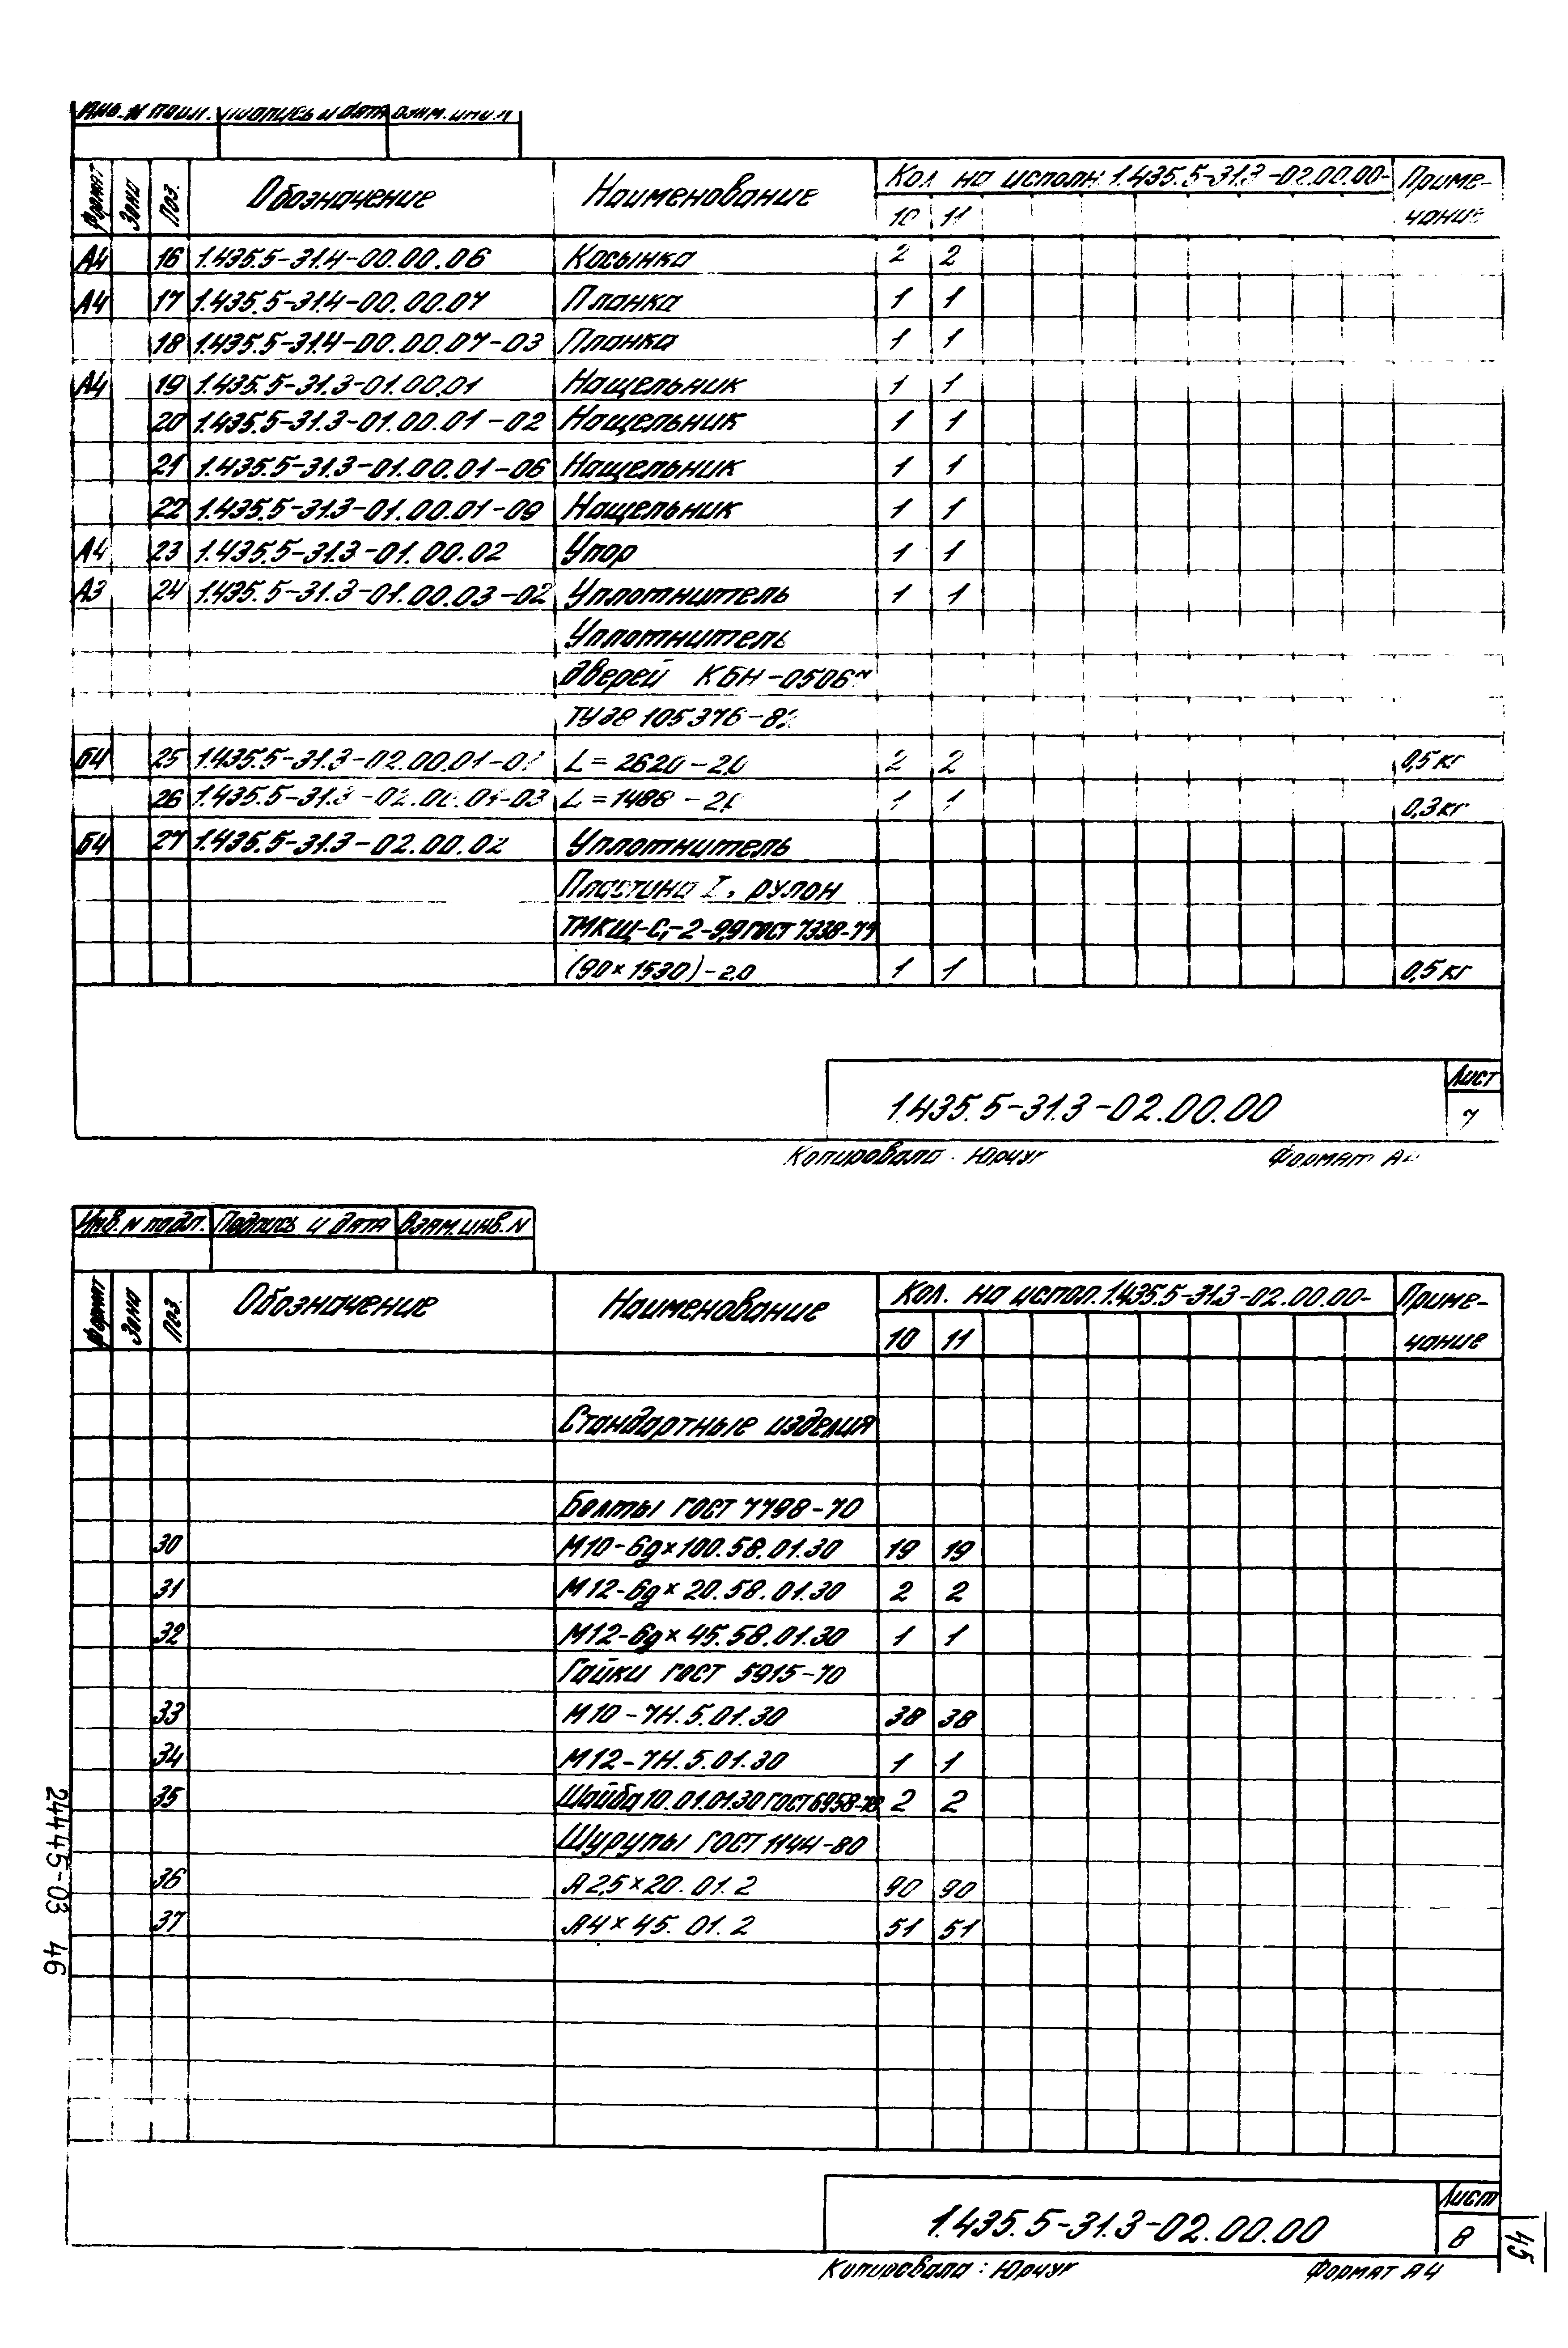 Инв. N подл. Подпись и дата Взам. инв. N
Формат Зона Поз. Обозначение Наименование Кол на исполн 1.435.5-31.3-02.00.00- Приме-
10 11 чание
А4 16 1.435.5-31.4-00.00.06 Косынка 2 2
А4 17 1.435.5-31.4-00.00.07 Планка 1 1
18 1.435.5-31.4-00.00.07-03 Планка 1 1
А4 19 1.435.5-31.3-01.00.01 Нащельник 1 1
20 1.435.5-31.3-01.00.01-02 Нащельник 1 1
21 1.435.5-31.3-01.00.01-06 Нащельник 1 1
22 1.435.5-31.3-01.00.01-09 Нащельник 1 1
А4 23 1.435.5-31.3-01.00.02 Упор 1 1
А3 24 1.435.5-31.3-01.00.03-02 Уплотнитель 1 1
Уплотнитель
дверей КБН-0506м
ТУ38 105376-82
Б4 25 L=2620-2.0 2 2 0,5 кг
26 1.435.5-31.3-02.00.01-03 L=1488-2.0 1 1 0,3 кг
Б4 27 1.435.5-31.3-02.00.02 Уплотнитель
Пластина I, рулон
ТМКЩ-С,-2-9,9 ГОСТ 7338-77
(90×1530)-2.0 1 1 0,5 кг
1.435.5-31.3-02.00.00
Лист
7
Копировала. Юрчук Формат А4
Инв. N подл. Подпись и дата Взам. инв. N
Формат Зона Поз. Обозначение Наименование Кол. на испол. 1.435.5-31.3-02.00.00- Приме-
10 11 чание
Стандартные изделия
Болты ГОСТ 7798-70
30 М10-6g×100.58.01.30 19 19
31 М12-6g×20.58.01.30 2 2
32 М12-6g×45.58.01.30 1 1
Гайки ГОСТ 5915-70
33 М10-7Н.5.01.30 38 38
34 М12-7Н.5.01.30 1 1
35 Шайба 10.01.01.30 ГОСТ 6958-78 2 2
Шурупы ГОСТ 1144-80
36 А2,5×20.01.2 90 90
37 А4×45.01.2 51 51
24445-03 46
1.435.5-31.3-02.00.00
Лист
8
45
Копировала: Юрчук Формат А4